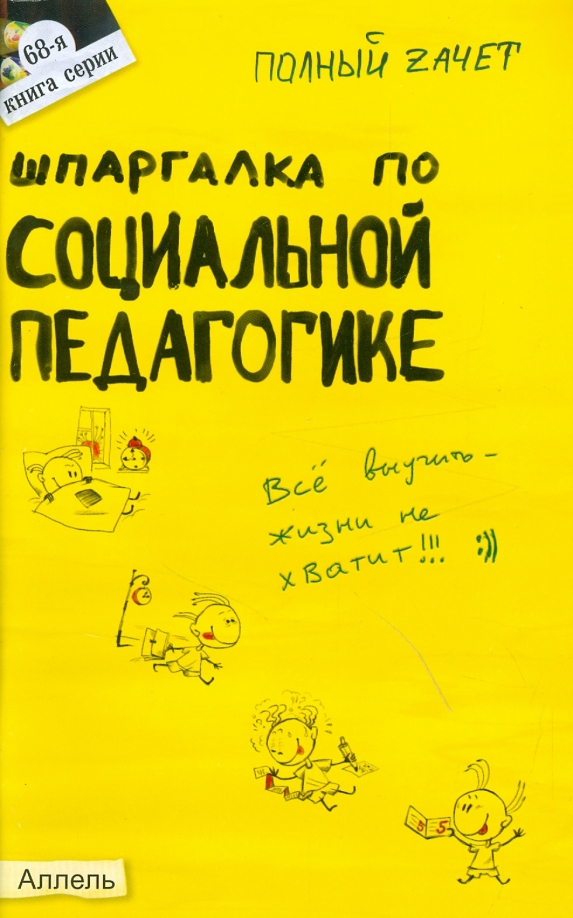 68-я
книга серии
ПОЛНЫЙ ZАЧЕТ
ШПАРГАЛКА ПО
СОЦИАЛЬНОЙ
ПЕДАГОГИКЕ
Всё выучить -
жизни не
хватит!!! :))
5 5
Аллель